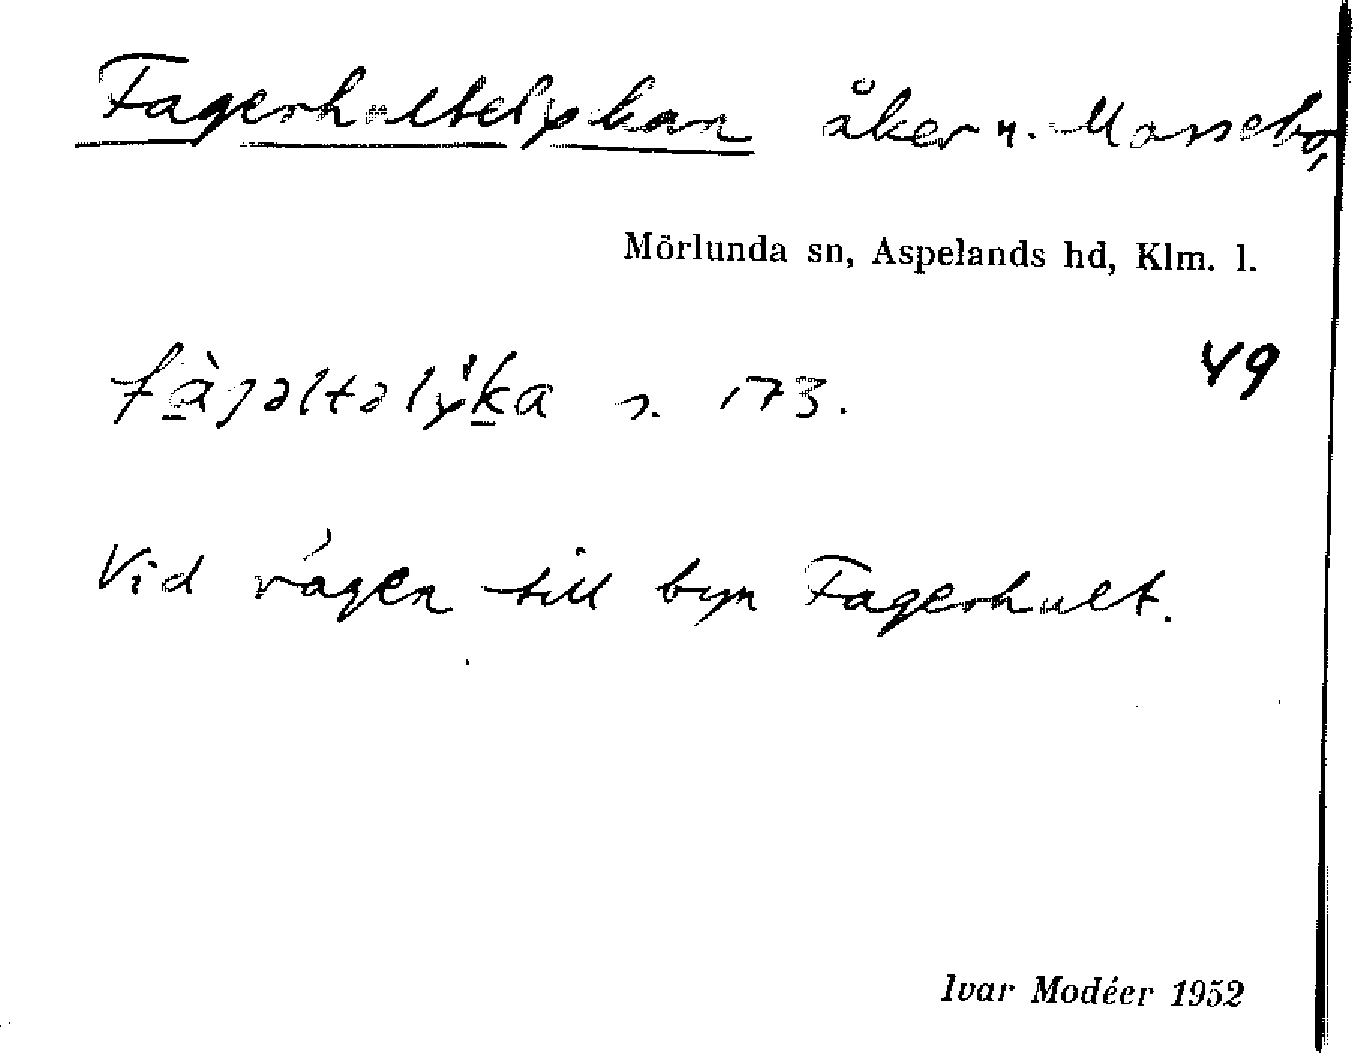 Fagerhultelyckan åker n. Mossebo,
Mörlunda sn, Aspelands hd, Klm. l.
49
fàɡəltəly̋ka s. 173.
Vid vägen till byn Fagerhult.
Ivar Modéer 1952